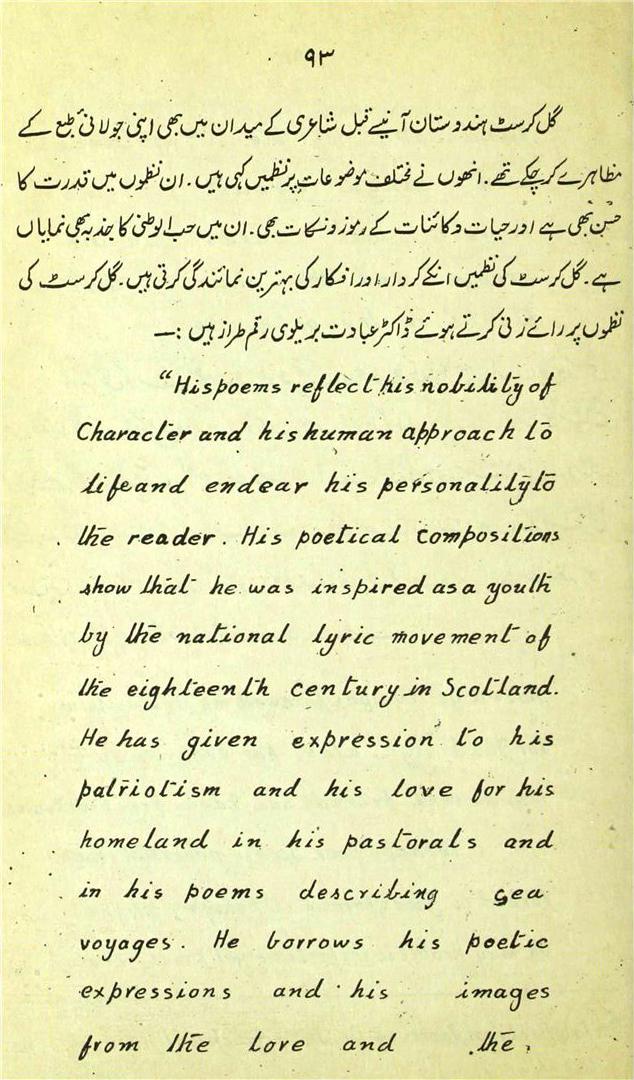 ۹۳
گل کرسٹ ہندوستان آنیسے قبل شاعری کے میدان میں بھی اپنی جولانیٔ طبع کے
مظاہرے کرچکے تھے۔ انھوں نے مختلف موضوعات پر نظمیں کہی ہیں۔ ان نظموں میں قدرت کا
حسن بھی ہے اور حیات و کائنات کے رموز و نکات بھی۔ ان میں حب الوطنی کا جذبہ بھی نمایاں
ہے۔ گل کرسٹ کی نظمیں انکے کردار اور افکار کی بہترین نمائندگی کرتی ہیں۔ گل کرسٹ کی
نظموں پر رائے زنی کرتے ہوئے ڈاکٹر عبادت بریلوی رقم طراز ہیں :—
“His poems reflect his nobility of
Character and his human approach to
life and endear his personality to
the reader. His poetical compositions
show that he was inspired as a youth
by the national lyric movement of
the eighteenth century in Scotland.
He has given expression to his
patriotism and his love for his
homeland in his pastorals and
in his poems describing sea
voyages. He borrows his poetic
expressions and his images
from the Lore and the